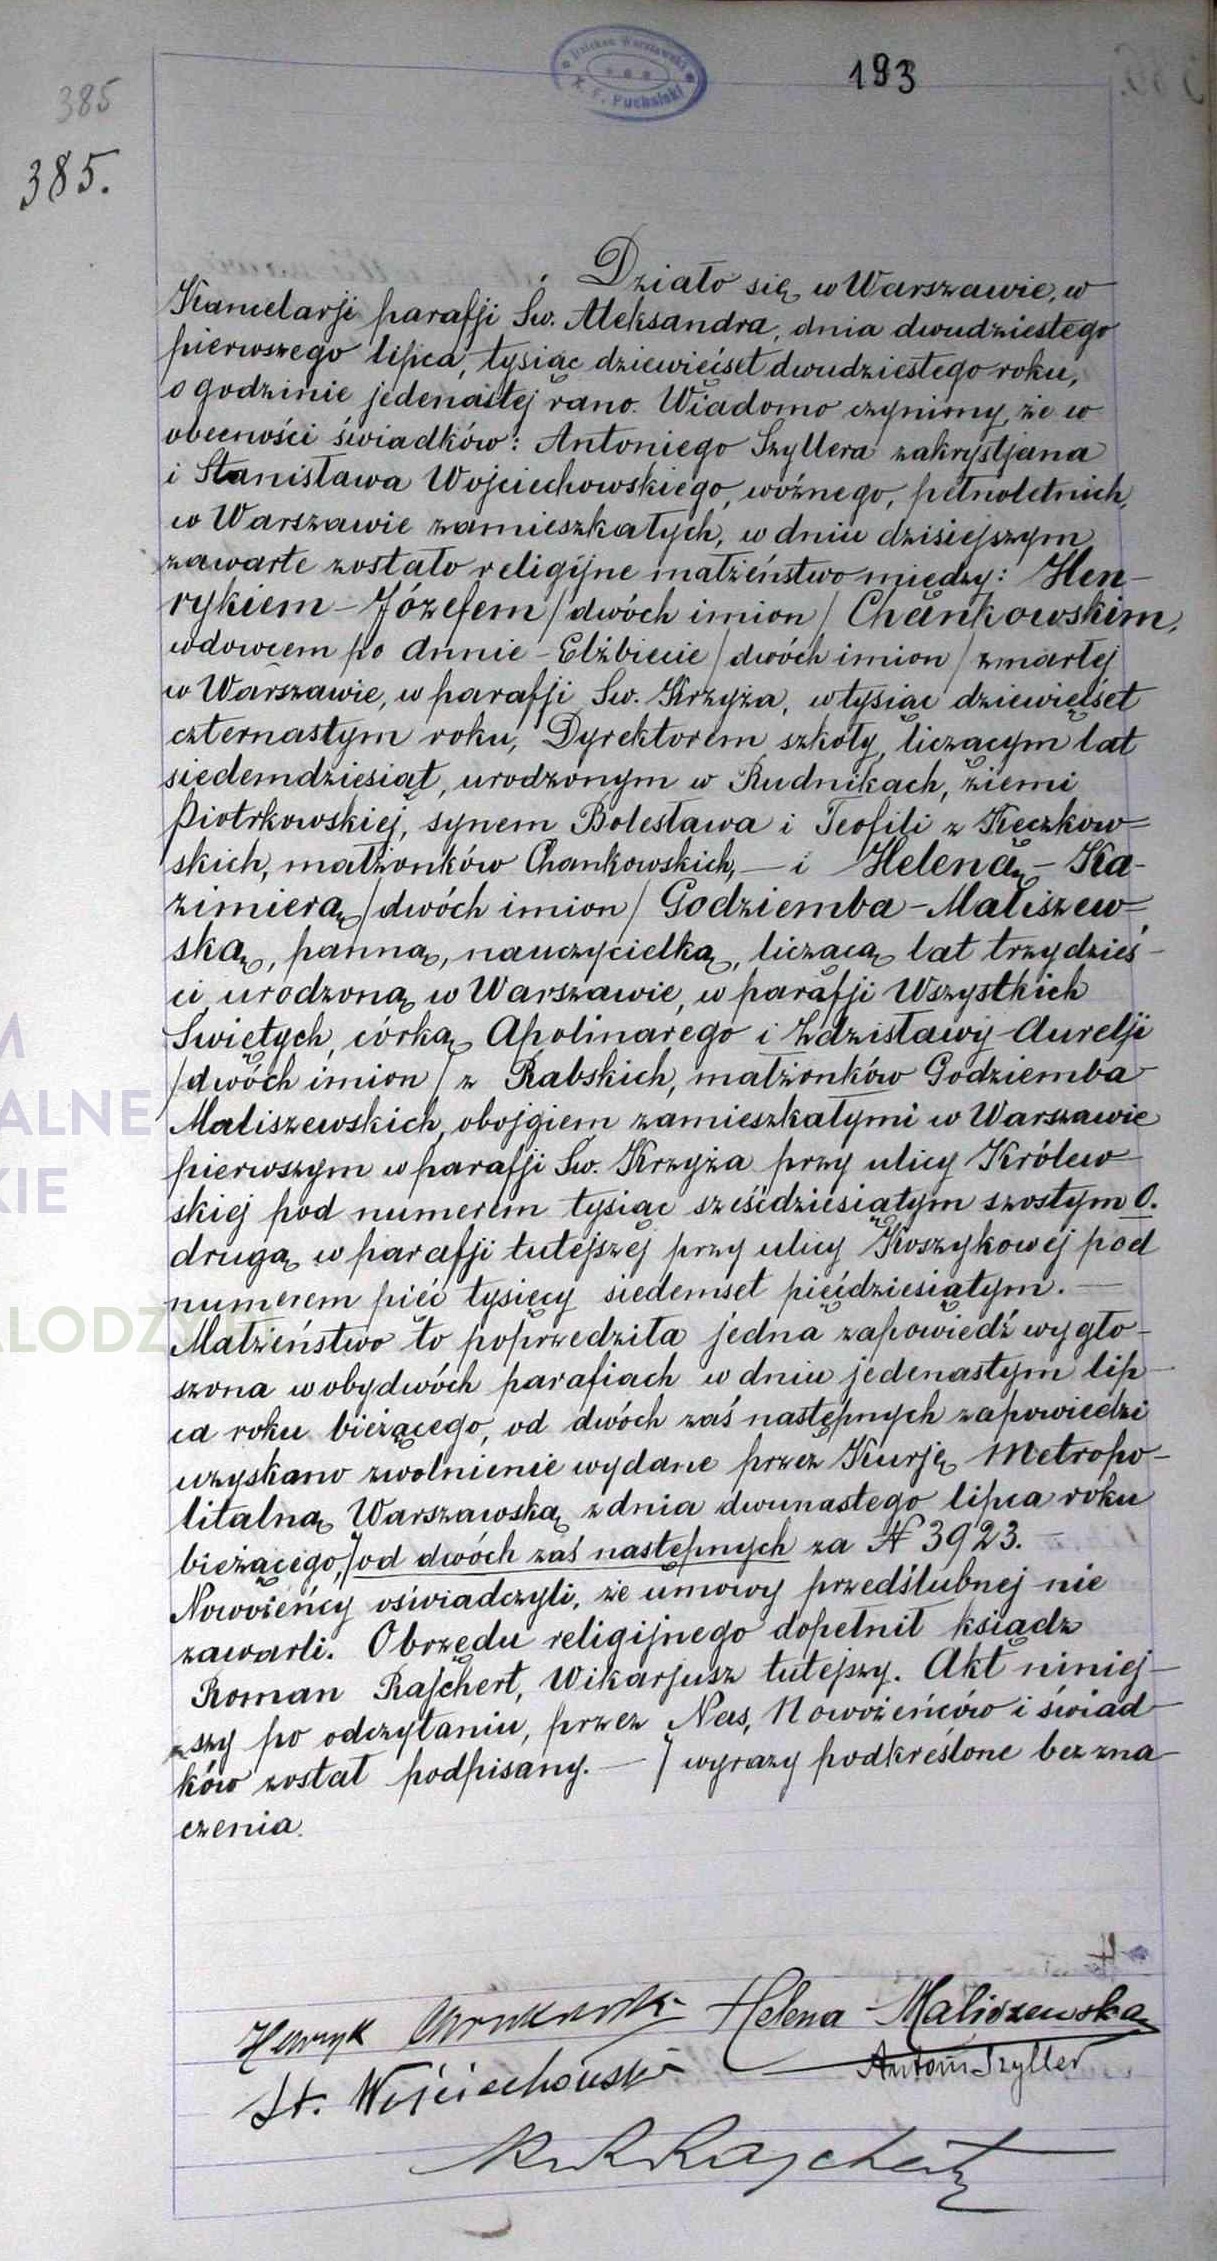 193
Dziekan Warszawski
X. F. Puchalski
385
385.
Działo się w Warszawie, w
Kancelarji parafji Św. Aleksandra, dnia dwudziestego
pierwszego lipca, tysiąc dziewięćset dwudziestego roku,
o godzinie jedenastej rano. Wiadomo czynimy, że w
obecności świadków: Antoniego Szyllera zakrystjana
i Stanisława Wojciechowskiego, woźnego, pełnoletnich,
w Warszawie zamieszkałych, w dniu dzisiejszym
zawarte zostało religijne małżeństwo między: Hen-
rykiem-Józefem /dwóch imion/ Chankowskim,
wdowcem po Annie-Elżbiecie /dwóch imion/ zmarłej
w Warszawie, w parafji Św. Krzyża, w tysiąc dziewięćset
czternastym roku, Dyrektorem szkoły, liczącym lat
siedemdziesiąt, urodzonym w Rudnikach, ziemi
Piotrkowskiej, synem Bolesława i Teofili z Kęczkow=
skich, małżonków Chankowskich, — i Heleną-Ka-
zimierą /dwóch imion/ Godziemba-Maliszew=
ską, panną, nauczycielką, liczącą lat trzydzieś-
ci, urodzoną w Warszawie, w parafji Wszystkich
Świętych, córką Apolinarego i Zdzisławy-Aurelji
/dwóch imion/ z Rabskich, małżonków Godziemba
Maliszewskich, obojgiem zamieszkałymi w Warszawie
pierwszym w parafji Św. Krzyża przy ulicy Królew-
skiej pod numerem tysiąc sześćdziesiątym szóstym O.
drugą w parafji tutejszej przy ulicy Koszykowej pod
numerem pięć tysięcy siedemset pięćdziesiątym. —
Małżeństwo to poprzedziła jedna zapowiedź wygło-
szona w obydwóch parafiach w dniu jedenastym lip-
ca roku bieżącego, od dwóch zaś następnych zapowiedzi
uzyskano zwolnienie wydane przez Kurję Metropo-
litalną Warszawską z dnia dwunastego lipca roku
bieżącego,/od dwóch zaś następnych za № 3923. —
Nowożeńcy oświadczyli, że umowy przedślubnej nie
zawarli. Obrzędu religijnego dopełnił ksiądz
Roman Rajchert, Wikarjusz tutejszy. Akt niniej-
szy po odczytaniu, przez Nas, Nowożeńców i świad-
ków został podpisany. — / wyrazy podkreślone bez zna-
czenia.
Henryk Chankowski Helena Maliszewska
St. Wojciechowski Antoni Szyller
Rajchert
M
ALNE
KIE
LODZY.PL